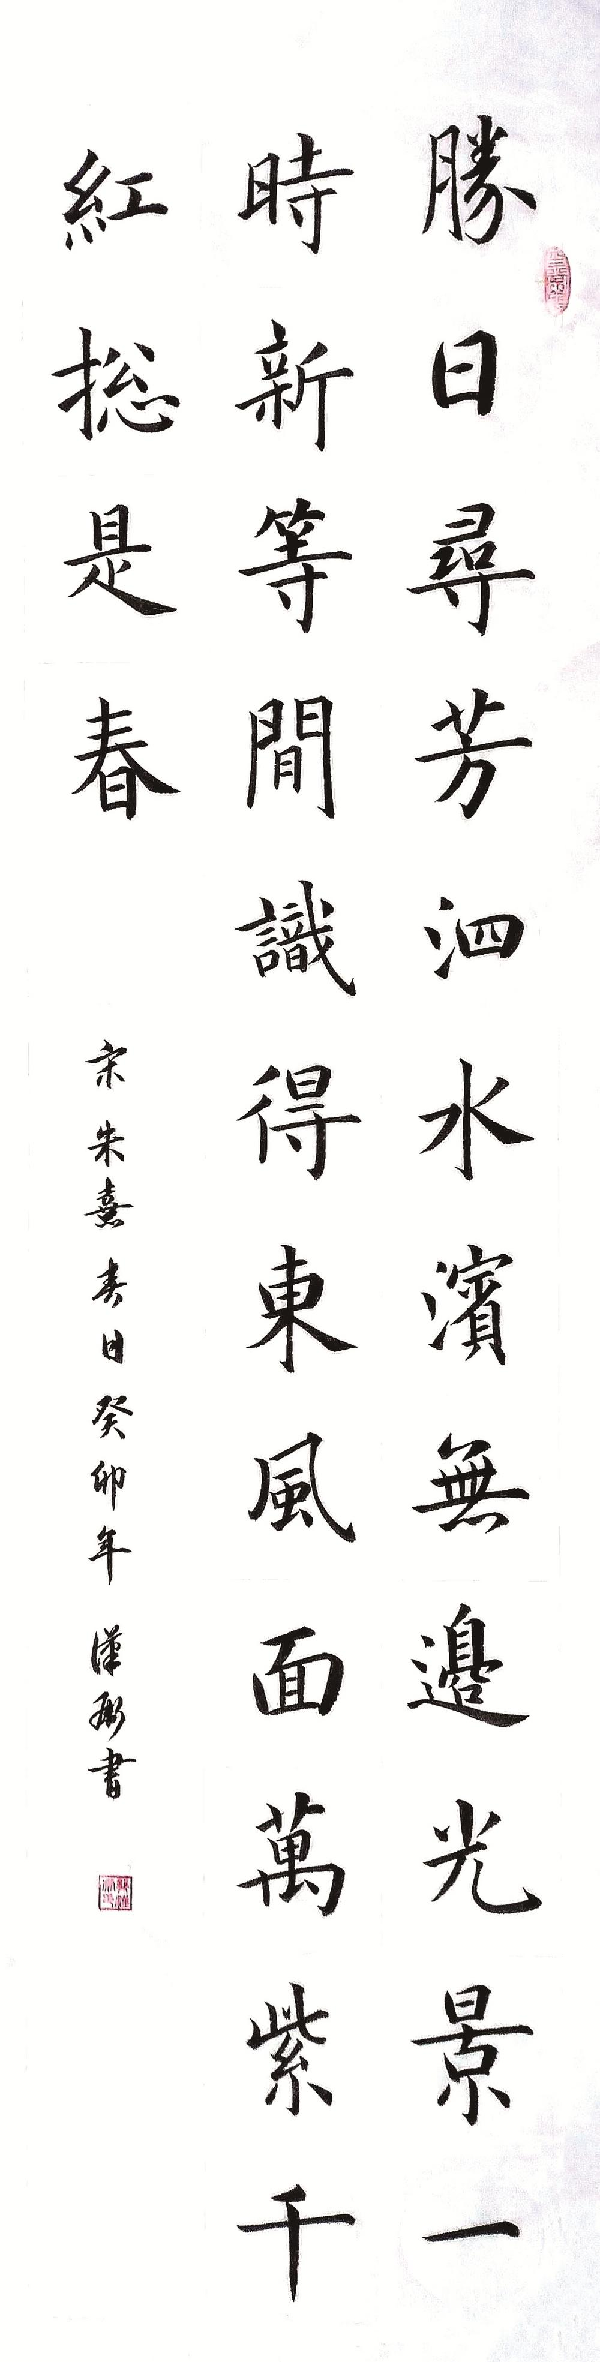 勝日尋芳泗水濱無邊光景一
時新等閒識得東風面萬紫千
紅総是春
宋朱熹春日癸卯年漢彬書